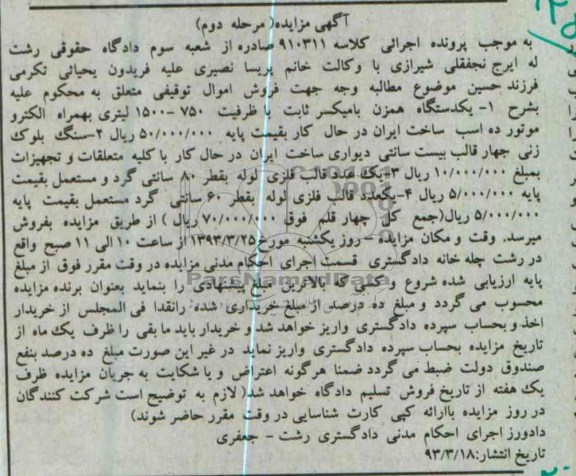 آگهی مزایده( مرحله دوم)
به موجب پرونده اجرائی کلاسه ۹۱۰۳۱۱ صادره از شعبه سوم دادگاه حقوقی رشت
له ایرج نجفقلی شیرازی با وکالت خانم پریسا نصیری علیه فریدون یحیائی تکرمی
فرزند حسین موضوع مطالبه وجه جهت فروش اموال توقیفی متعلق به محکوم علیه
بشرح ۱- یکدستگاه همزن بامیکسر ثابت با ظرفیت ۷۵۰ -۱۵۰۰ لیتری بهمراه الکترو
موتور ده اسب ساخت ایران در حال کار بقیمت پایه ۵۰/۰۰۰/۰۰۰ ریال ۲-سنگ بلوک
زنی چهار قالب بیست سانتی دیواری ساخت ایران در حال کار با کلیه متعلقات و تجهیزات
بمبلغ ۱۰/۰۰۰/۰۰۰ ریال ۳-یک عدد قالب فلزی لوله بقطر ۸۰ سانتی گرد و مستعمل بقیمت
پایه ۵/۰۰۰/۰۰۰ ریال ۴-یکعدد قالب فلزی لوله بقطر ۶۰ سانتی گرد مستعمل بقیمت پایه
۵/۰۰۰/۰۰۰ ریال(جمع کل چهار قلم فوق ۷۰/۰۰۰/۰۰۰ ریال ) از طریق مزایده بفروش
میرسد. وقت و مکان مزایده – روز یکشنبه مورخ ۱۳۹۳/۳/۲۵ از ساعت ۱۰ الی ۱۱ صبح واقع
در رشت چله خانه دادگستری قسمت اجرای احکام مدنی مزایده در وقت مقرر فوق از مبلغ
پایه ارزیابی شده شروع و کسی که بالاترین مبلغ پیشنهادی را بنماید بعنوان برنده مزایده
محسوب می گردد و مبلغ ده درصد از مبلغ خریداری شده رانقدا فی المجلس از خریدار
اخذ و بحساب سپرده دادگستری واریز خواهد شد و خریدار باید ما بقی را ظرف یک ماه از
تاریخ مزایده بحساب سپرده دادگستری واریز نماید در غیر این صورت مبلغ ده درصد بنفع
صندوق دولت ضبط می گردد ضمنا هرگونه اعتراض و یا شکایت به جریان مزایده ظرف
یک هفته از تاریخ فروش تسلیم دادگاه خواهد شد( لازم به توضیح است شرکت کنندگان
در روز مزایده باارائه کپی کارت شناسایی در وقت مقرر حاضر شوند)
دادورز اجرای احکام مدنی دادگستری رشت – جعفری
تاریخ انتشار:۹۳/۳/۱۸
ParsNamadData